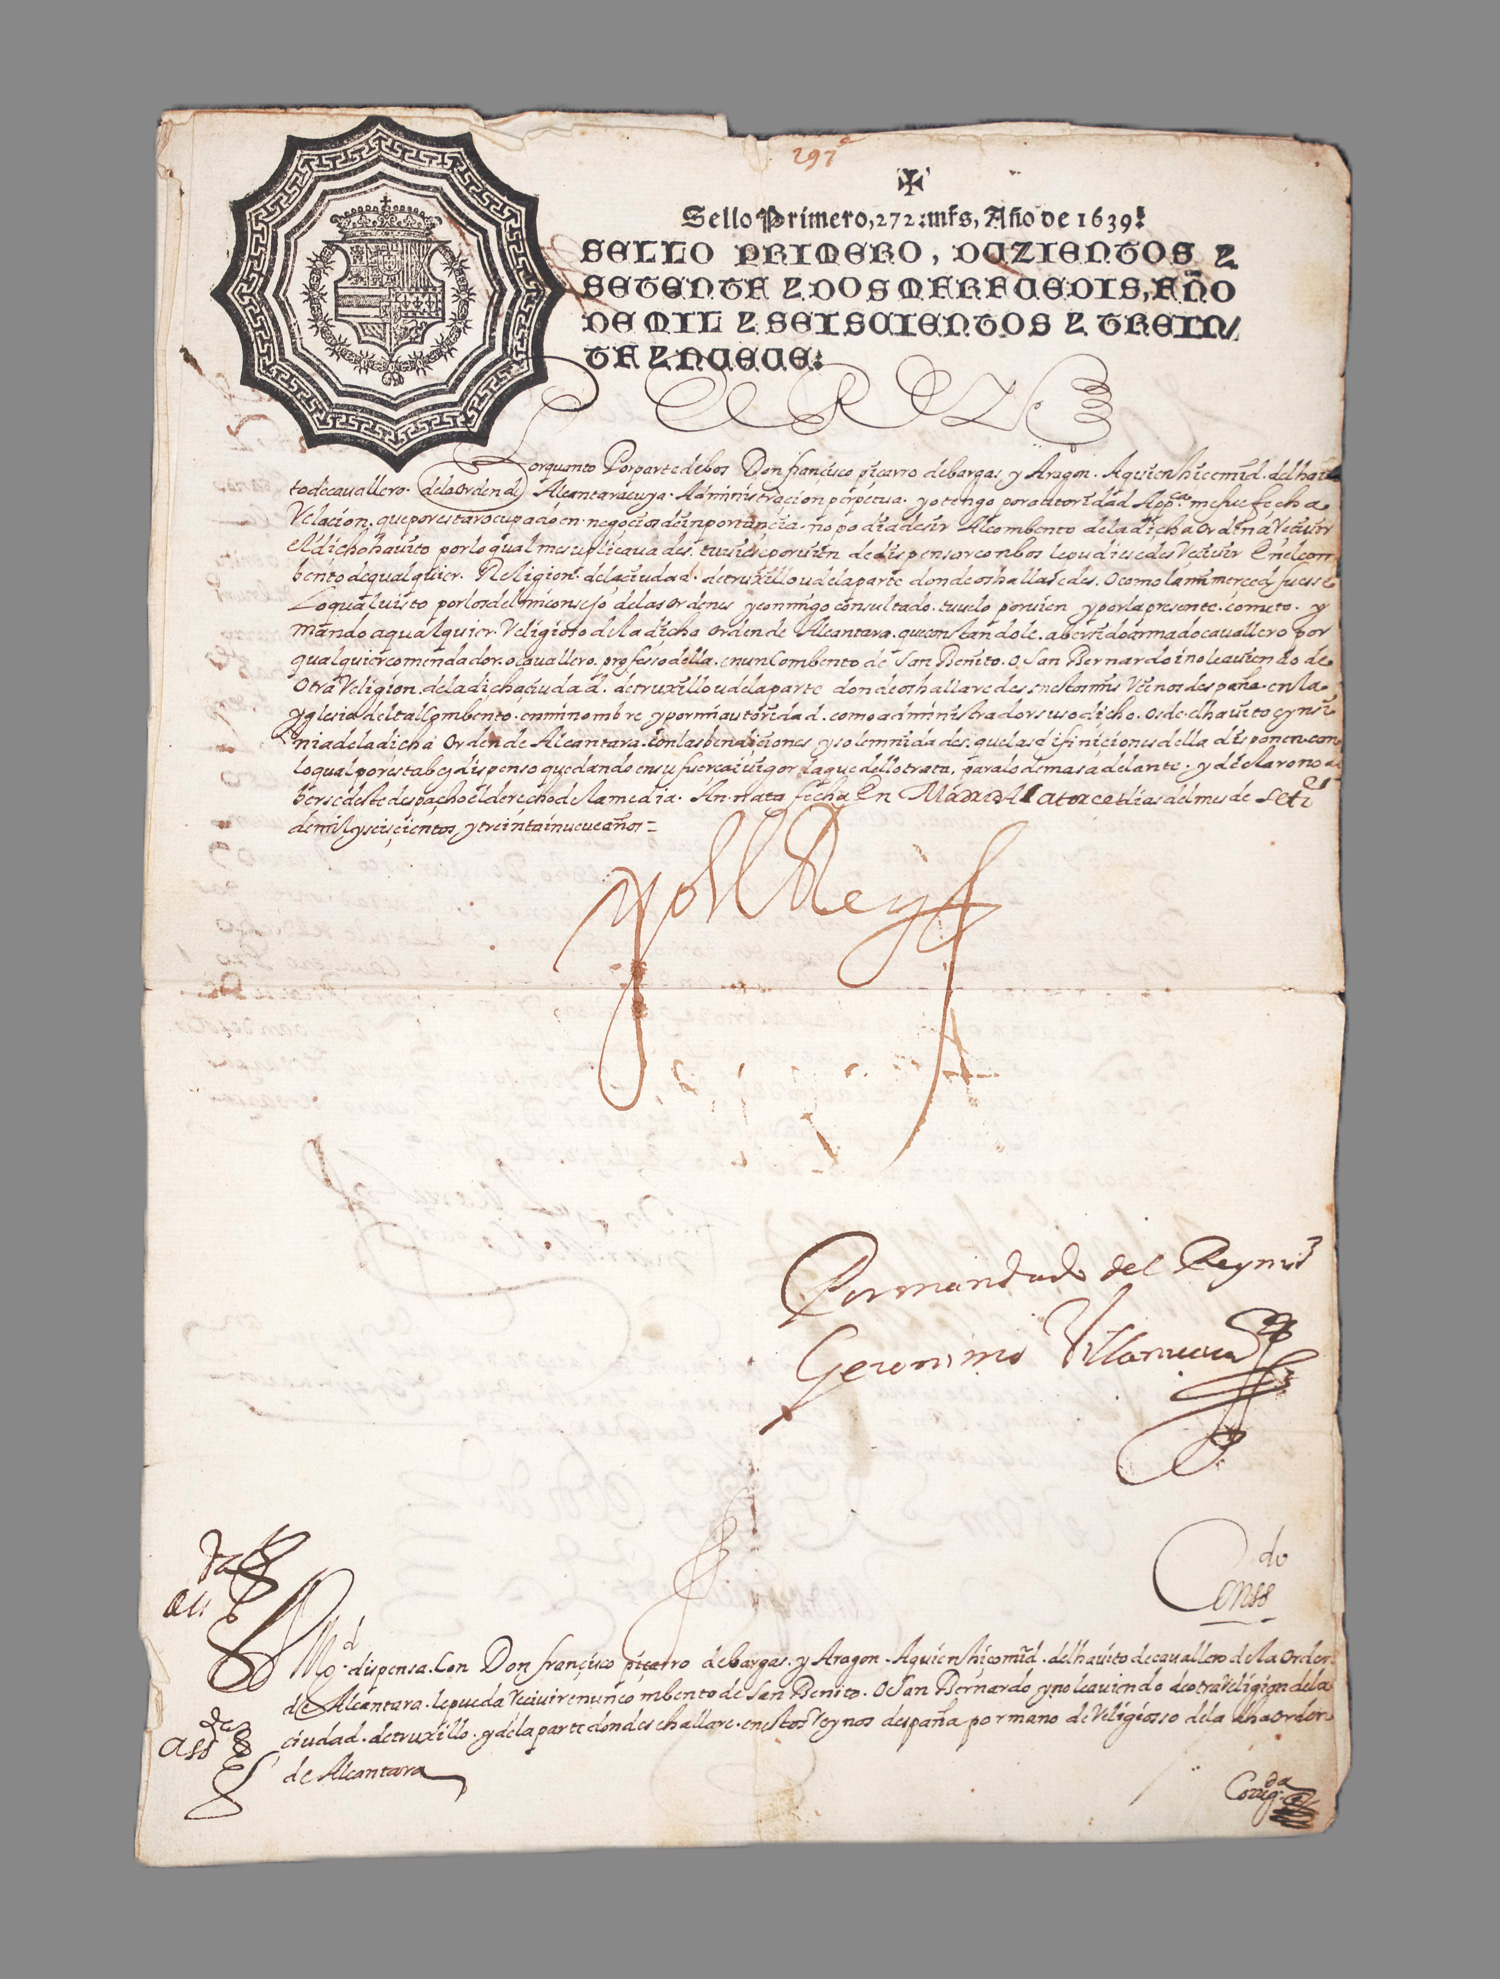 297
Sello Primero, 272. mrs, Año de 1639.
SELLO PRIMERO, DUZIENTOS Y
SETENTA Y DOS MARAVEDIS, AÑO
DE MIL Y SEISCIENTOS Y TREIN/
TA Y NUEVE.
El Rey
Porquanto Por parte de bos Don francisco piçarro de bargas y Aragon. A quien hice md. del haui
to de cauallero. de la orden de Alcantara cuya. Administraçion perpetua. yo tengo por autoridad App.ca me fue fecha
Relaçion. que por estar ocupado en. negoçios de inportançia. no podia des ir Al combento de la dicha orden a Reçiuir
El dicho hauito por lo qual me suplicaua des. tuuiese por uien de dispensar con bos le pudiesedes Reçiuir En el com
bento de qualquier. Religion de la ciudad. de truxillo u de la parte donde os hallasedes. o como la mi merced fuesse
Lo qual uisto por los del mi consejo de las ordenes y conmigo consultado. tuuelo por uien y por la presente. cometo. y
mando a qualquier Religioso de la dicha orden de Alcantara. que constandole. aber sido armado cauallero por
qualquier comendador. o cauallero. professo della. en un Combento de San Benito. o San Bernardo i no le auiendo de
otra Religion. de la dicha ciudad. de truxillo u de la parte donde os hallaredes en estos mis Reinos despaña. en la
yglesia del tal Combento. en mi nombre y por mi autoridad. como administrador suso dicho. os de el hauito e ynsi
nia de la dicha orden de Alcantara. con las bendiçiones y solemnidades. que las difiniciones della disponen. con
lo qual por esta bez dispenso quedando en su fuerça i uigor la que dello trata, para lo demas adelante. y declaro no de
berse deste despacho el derecho de la media. An. nata fecha En Madrid A catorce dias del mes de seti
de mil y seiscientos y treinta i nueue años =
Yo el Rey
Por mandado del Rey nro s
Geronimo Villanueua
do
Conss
V. Md. dispensa. Con Don francisco piçarro de bargas. y Aragon. A quien hiço md. del hauito de cauallero de la orden
de Alcantara. le pueda Reciuir en un combento de San Benito. o San Bernardo y no le auiendo de otra Religion de la
ciudad. de truxillo. y de la parte donde se hallare. en estos Reynos despaña por mano de Religiosso de la dha orden
de Alcantara
Correg.da